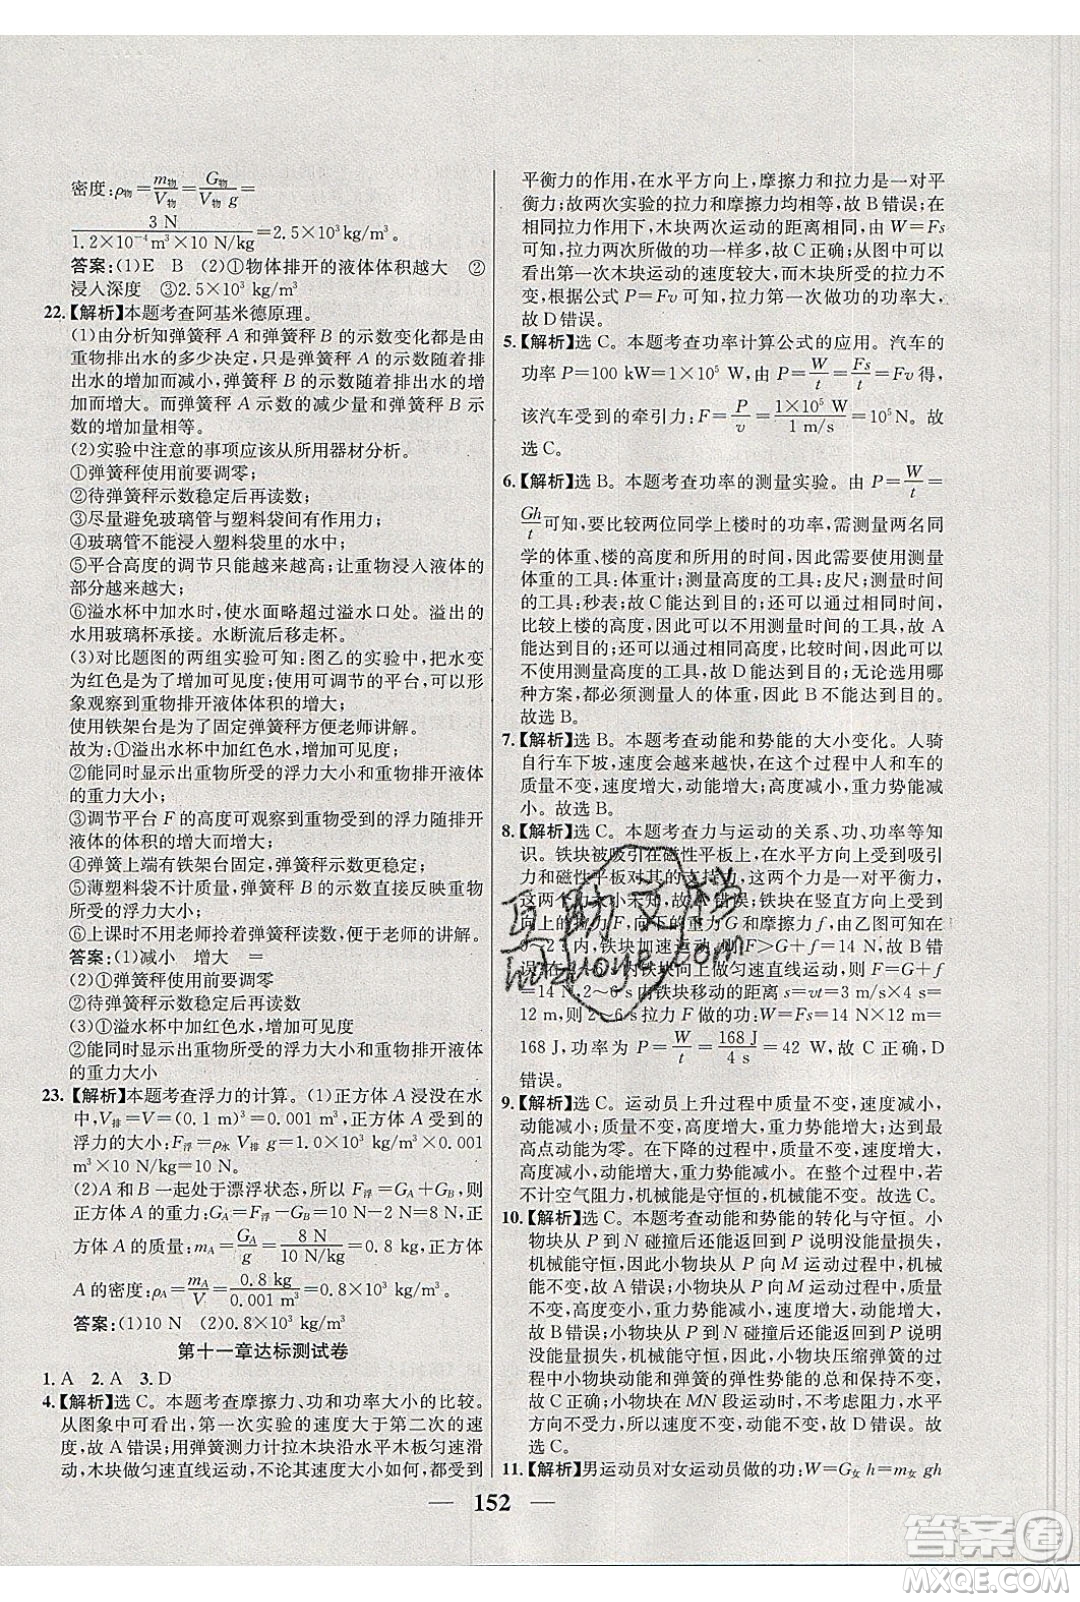 密度:ρ物=m物/V物=G物/V物 g=
3 N/1.2×10⁻⁴m³×10 N/kg=2.5×10³ kg/m³
答案:(1)E B (2)①物体排开的液体体积越大 ②
浸入深度 ③2.5×10³ kg/m³
22.【解析】本题考查阿基米德原理。
(1)由分析知弹簧秤 A 和弹簧秤 B 的示数变化都是由
重物排出水的多少决定,只是弹簧秤 A 的示数随着排
出水的增加而减小,弹簧秤 B 的示数随着排出水的增
加而增大。而弹簧秤 A 示数的减少量和弹簧秤 B 示数
的增加量相等。
(2)实验中注意的事项应该从所用器材分析。
①弹簧秤使用前要调零;
②待弹簧秤示数稳定后再读数;
③尽量避免玻璃管与塑料袋间有作用力;
④玻璃管不能浸入塑料袋里的水中;
⑤平台高度的调节只能越来越高;让重物浸入液体的
部分越来越大;
⑥溢水杯中加水时,使水面略超过溢水口处。溢出的
水用玻璃杯承接。水断流后移走杯。
(3)对比题图的两组实验可知:图乙的实验中,把水变
为红色是为了明显;使用可调节的平台,可以形
象观察到重物排开液体体积的变化;
使用铁架台是为了固定弹簧秤方便老师讲解。
故为:①溢出水杯中加红色水,增加可见度;
②能同时显示出重物所受的浮力大小和重物排开液体
的重力大小;
③调节平台 F 的高度可观察到重物受到的浮力随排开
液体的体积的增大而增大;
④弹簧上端有铁架台固定,弹簧秤示数稳定;
⑤薄塑料袋不计质量,弹簧秤 B 的示数直接反映重物
所受的浮力大小;
⑥上课时不用老师拎着弹簧秤,便于教师的讲解。
答案:(1)减小 增大 =
(2)①弹簧秤使用前要调零
②待弹簧秤示数稳定后再读数
(3)①溢水杯中加红色水,增加可见度
②能同时显示出重物所受的浮力大小和重物排开液体
的重力大小
23.【解析】本题考查浮力的计算。(1)正方体 A 浸没在水
中,V排=V=(0.1 m)³=0.001 m³,正方体 A 受到的
浮力的大小:F浮=ρ水 V排 g=1.0×10³ kg/m³×0.001
m³×10 N/kg=10 N。
(2)A 和 B 一起处于漂浮状态,所以 F浮=GA+GB,则
正方体 A 的重力:GA=F浮-GB=10 N-2 N=8 N,正
方体 A 的质量:mA=GA/g=8 N/10 N/kg=0.8 kg,正方体
A 的密度:ρA=mA/V=0.8 kg/0.001 m³=0.8×10³ kg/m³。
答案:(1)10 N (2)0.8×10³ kg/m³
第十一章达标测试卷
1. A 2. A 3. D
4.【解析】选 C。本题考查摩擦力、功和功率大小的比较。
从图象中可看出,第一次实验的速度大于第二次的速
度,故 A 错误;用弹簧测力计拉木块沿水平木板匀速滑
动,木块做匀速直线运动,不论其速度大小如何,都受到
平衡力的作用,在水平方向上,摩擦力和拉力是一对平
衡力;故两次实验的拉力和摩擦力均相等,故 B 错误;在
相同拉力作用下,木块两次运动的距离相等,由 W=Fs
可知,拉力两次所做的功一样多,故 C 正确;从图中可以
看出第一次木块运动的速度较大,而木块所受的拉力不
变,根据公式 P=Fv 可知,拉力第一次做功的功率大,
故 D 错误。
5.【解析】选 C。本题考查功率计算公式的应用。汽车的
功率 P=100 kW=1×10⁵ W,由 P=W/t=Fs/t=Fv 得,
该汽车受到的牵引力:F=P/v=1×10⁵ W/1 m/s=10⁵N。故
选 C。
6.【解析】选 B。本题考查功率的测量实验。由 P=W/t=
Gh/t可知,要比较两位同学上楼时的功率,需测量两名同
学的体重、楼的高度和所用的时间,因此需要使用测量
体重的工具:体重计;测量高度的工具:皮尺;测量时间的
工具:秒表;故 C 能达到目的;还可以通过相同时间,
比较上楼的高度来测量功率的大小,因此用不到秒表,故 A
能达到目的;还可以采用上相同的高度,比较时间,因此可
不用测量高度的工具,故 D 能达到目的;无论选用哪
种方案,都必须测量人的体重,因此 B 不能达到目的。
故选 B。
7.【解析】选 B。本题考查动能和势能的大小变化。人骑
自行车下坡,速度会越来越快,在这个过程中人和车的
质量不变,速度增大,动能增大,高度减小,重力势能减
小。故选 B。
8.【解析】选 C。本题考查力与运动的关系、功、功率等知
识。铁块被吸引在磁性平板上,在水平方向上受吸引
力和磁性平板对其的支持力,这两个力是一对平衡力,
这两个力大小未知,故 A 错误;铁块在竖直方向上受向
上的拉力 F、向下的重力 G 和摩擦力 f,由乙图可知
0~2 s 内,铁块加速运动,F>G+f=14 N,故 B 错
误;在 2~6 s 内铁块向上做匀速直线运动,F=G+f
=14 N,2~6 s 内铁块移动的距离 s=vt=3 m/s×4 s=
12 m,则 2~6 s 拉力 F 做的功:W=Fs=14 N×12 m=
168 J,功率为 P=W/t=168 J/4 s=42 W,故 C 正确,D
错误。
9.【解析】选 C。运动员上升过程中质量不变,速度减小,
动能减小;质量不变,高度增大,重力势能增大;达到最
高点动能不为零。在下降的过程中,质量不变,速度增大,
高度减小,动能增大,重力势能减小。在整个过程中,若
不计空气阻力,机械能是守恒的,机械能不变。故选 C。
10.【解析】选 C。本题考查动能和势能的转化与守恒。小
物块从 P 到 N 碰撞后还能返回 P 说明没有能量损失,
机械能守恒,因此小物块从 P 向 M 运动过程中,机械
能不变,故 A 错误;小物块从 P 向 M 运动过程中,质
量不变,高度变小,重力势能减小;速度增大,动能增大,
故 B 错误;小物块在 N 碰撞后还能返回 P
说明没有能量损失,小物块压缩弹簧的过程中,
小物块动能与弹簧的弹性势能的总和保持不变,故
C 正确;小物块在 MN 段运动过程中,高度不变,质量
不变,所以重力势能不变,故 D 错误。故
选 C。
11.【解析】男运动员对女运动员做的功:W=G女 h=m女 gh
152
互助文档
huzuoye.com
答案圈
MXQE.COM